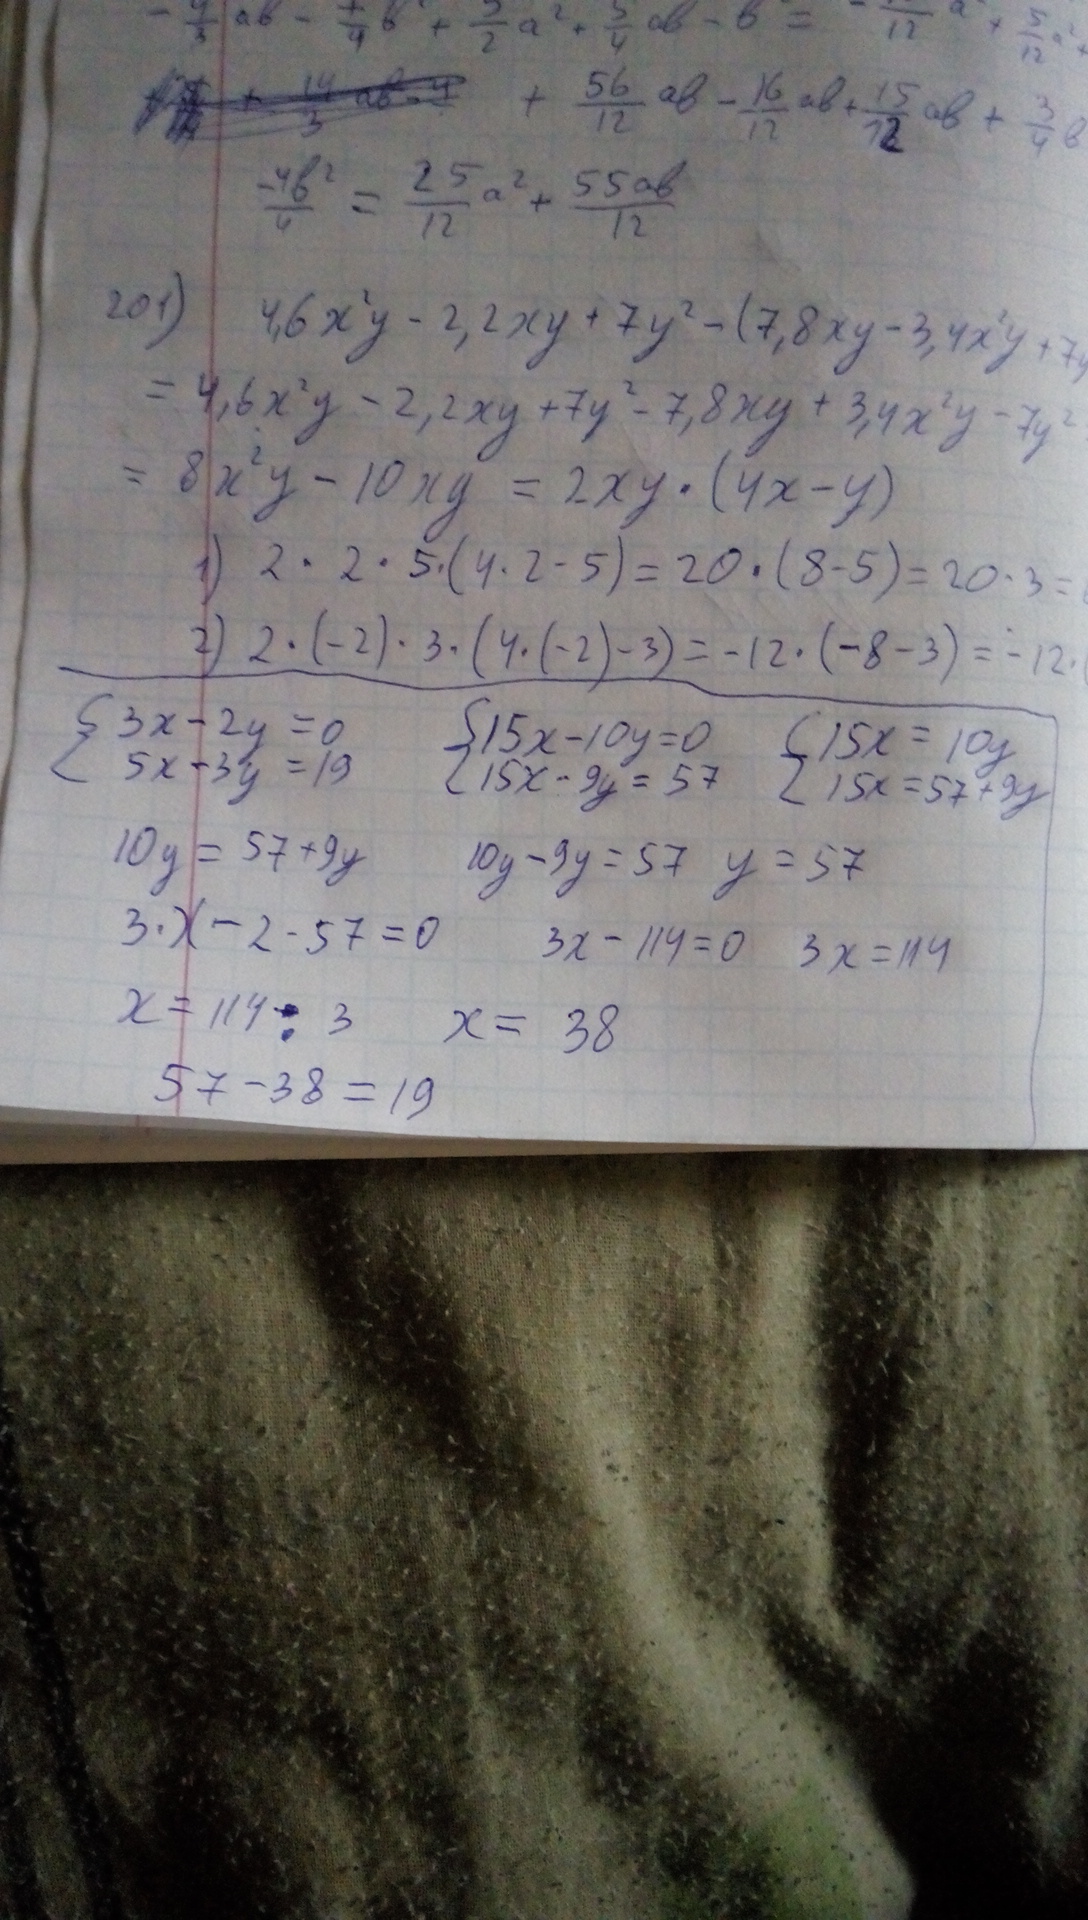 ab - 7/4 b² + 5/2 a² + 5/4 ab - b² =
+ 56/12 ab - 16/12 ab + 15/12 ab + 3/4 b
-4b²/4 = 25/12 a² + 55ab/12
201) 4,6x²y - 2,2xy + 7y² - (7,8xy - 3,4x²y + 7y
= 4,6x²y - 2,2xy + 7y² - 7,8xy + 3,4x²y - 7y²
= 8x²y - 10xy = 2xy · (4x - y)
1) 2 · 2 · 5 · (4 · 2 - 5) = 20 · (8 - 5) = 20 · 3 =
2) 2 · (-2) · 3 · (4 · (-2) - 3) = -12 · (-8 - 3) = -12 · (
{3x - 2y = 0 {15x - 10y = 0 {15x = 10y
5x - 3y = 19 15x - 9y = 57 15x = 57 + 9y
10y = 57 + 9y 10y - 9y = 57 y = 57
3 · x - 2 · 57 = 0 3x - 114 = 0 3x = 114
x = 114 : 3 x = 38
57 - 38 = 19